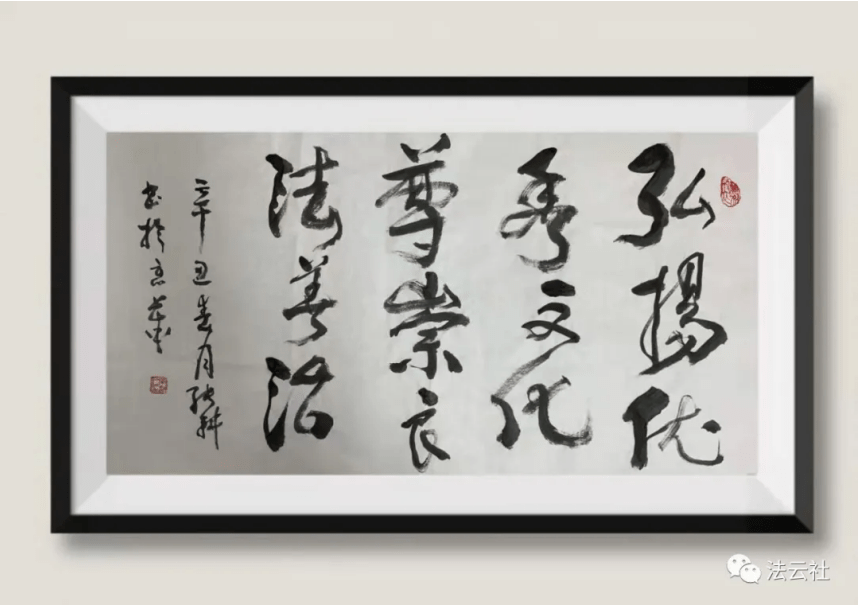 弘扬优
秀文化
尊崇良
法善治
辛丑春月
书于京华
法云社